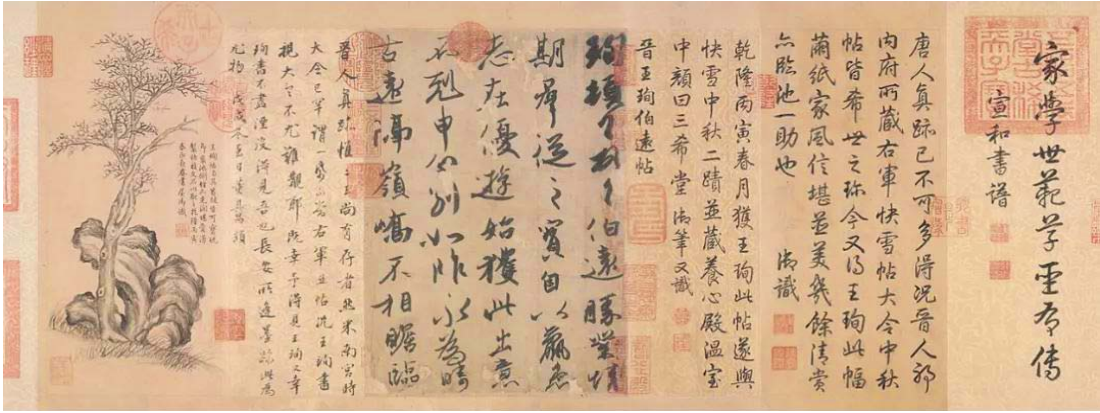 家學世範草聖有傳
宣和書譜
唐人真跡已不可多得況晉人耶
內府所藏右軍快雪帖大令中秋
帖皆希世之珍今又得王珣此幅
繭紙家風信堪並美幾餘清賞
亦臨池一助也 御識
乾隆丙寅春月獲王珣此帖遂與
快雪中秋二蹟並藏養心殿溫室
中顏曰三希堂 御筆又識
晉王珣伯遠帖
珣頓首頓首伯遠勝業情
期群從之寶自以羸患
志在優遊始獲此出意
不剋申分別如昨永為疇
古遠隔嶺嶠不相瞻臨
晉人真跡惟二王尚有存者然米南宮時
大令已罕謂一紙可當右軍五帖況王珣書
視大令不尤難覯耶既幸予得見王珣又幸
珣書不盡湮沒得見吾也長安所逢墨跡此為
尤物 戊戌冬至日董其昌題